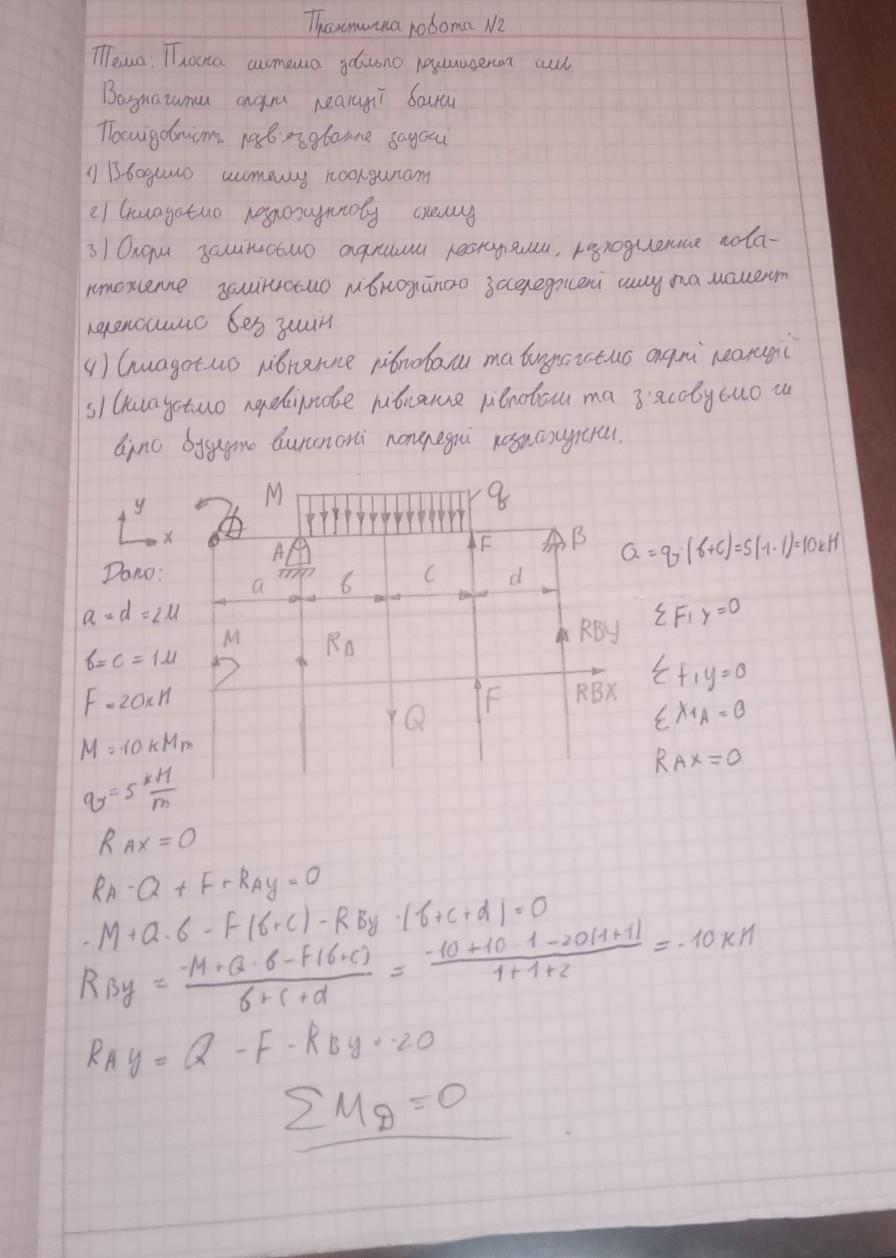 Практична робота N2
Тема: Плоска система довільно розміщених сил
Визначити опорні реакції балки
Послідовність розв'язування задачі
1) Вводимо систему координат
2) Складаємо розрахункову схему
3) Опори замінюємо опорними реакціями, розподілення нова-
нтаження замінюємо рівнодійною зосереджені силу та момент
переносимо без змін
4) Складаємо рівняння рівноваги та визначаємо опорні реакції
5) Складаємо перевірочне рівняння рівноваги та з'ясовуємо чи
вірно будуть виконані попередні розрахунки.
y
x
M
q
A
F
B
a
b
c
d
Q = q·(b+c)=5(1·1)=10кН
Дано:
a = d = 2м
b = c = 1м
F = 20кН
M = 10кМm
q = 5 кН/m
M
RA
Q
F
RBY
RBX
ΣF1y=0
Σf1y=0
ΣM1A=0
RAX=0
RAX=0
RA-Q+F+RAy=0
-M+Q·b-F(b+c)-RBy·(b+c+d)=0
RBy = -M+Q·b-F(b+c) / b+c+d = -10+10·1-20(1+1) / 1+1+2 = -10кН
RAy = Q - F - RBy = -20
ΣMD=0